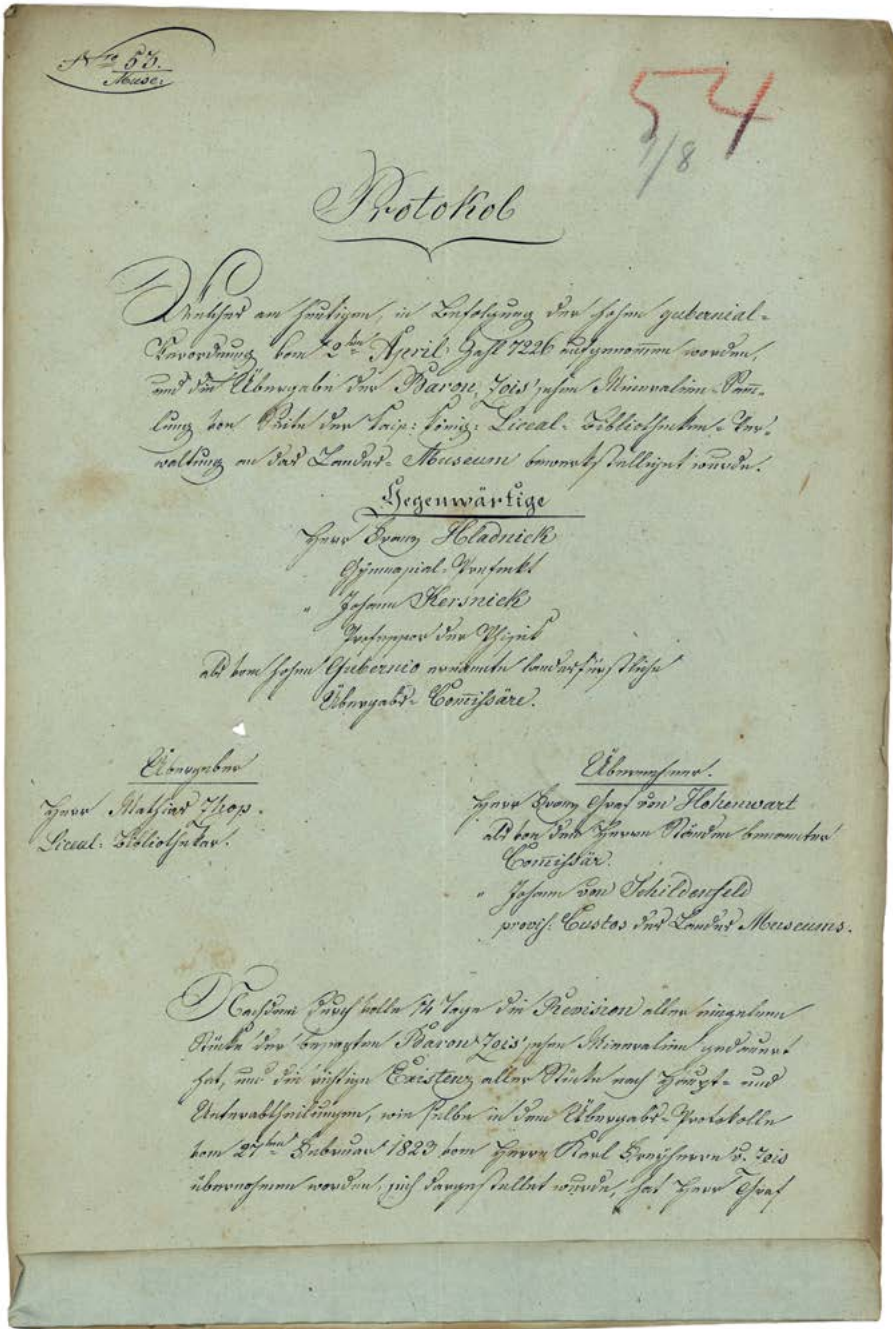 Nro 53.
Muse:
54
7/8
Protokol
Welches am heutigen, in Befolgung der hohen gubernial-
Verordnung vom 2ten April Zahl 7226 aufgenommen worden,
und die Übergabe der Baron Zois'schen Mineralien-Samm-
lung von Seite der kais: königl: Liceal-Bibliotheken-Ver-
waltung an das Landes-Museum bewerkstelliget wurde.
Gegenwärtige
Herr Franz Hladnick
Gymnasial-Prefekt
" Johann Kersnick
Professor der Phisik
als vom hohen Gubernio ernannte landesfürstliche
Übergabs-Comissäre.
Übergeber
Herr Mathias Zhop.
Liceal-Bibliothekar.
Übernehmer.
Herr Franz Graf von Hohenwart
als von den Herrn Ständen benannter
Comissär.
" Johann von Schildenfeld
provis: Custos des Landes Museums.
Nachdem durch volle 14 Tage die Revision aller einzelnen
Stücke der besagten Baron Zois'schen Mineralien gedauert
hat, und die richtige Existenz aller Stücke nach Haupt- und
Unterabtheilungen, wie selbe in dem Übergabs-Protokolle
vom 27ten Februar 1823 vom Herrn Karl Freyherrn v. Zois
übernohmen worden, sich dargestellet wurde, hat Herr Graf